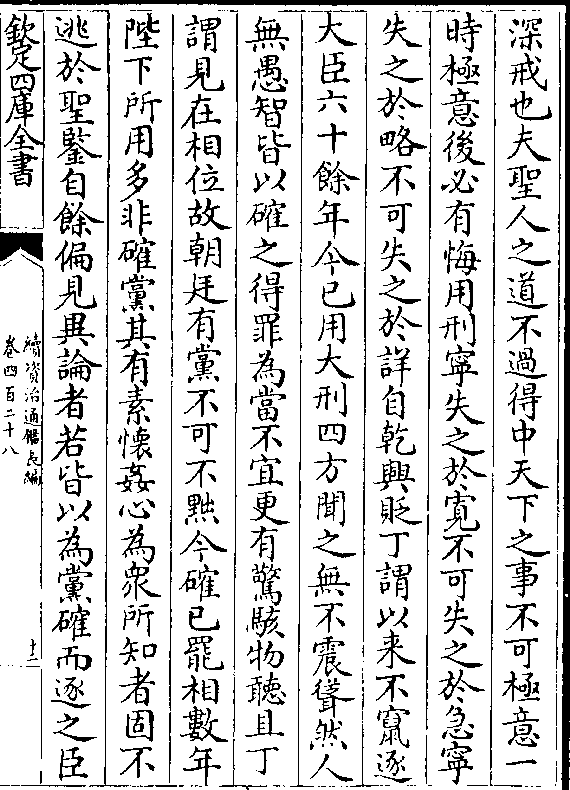 深戒也夫聖人之道不過得中天下之事不可極意一
時極意後必有悔用刑寧失之於寛不可失之於急寧
失之於略不可失之於詳自乾興貶丁謂以来不竄逐
大臣六十餘年今已用大刑四方聞之無不震聳然人
無愚智皆以確之得罪為當不宜更有驚駭物聽且丁
謂見在相位故朝廷有黨不可不㸃今確已罷相數年
陛下所用多非確黨其有素懐姦心為衆所知者固不
逃於聖鑒自餘偏見異論者若皆以為黨確而逐之臣
欽定四庫全書
續資治通鑑長編
卷四百二十八
十二